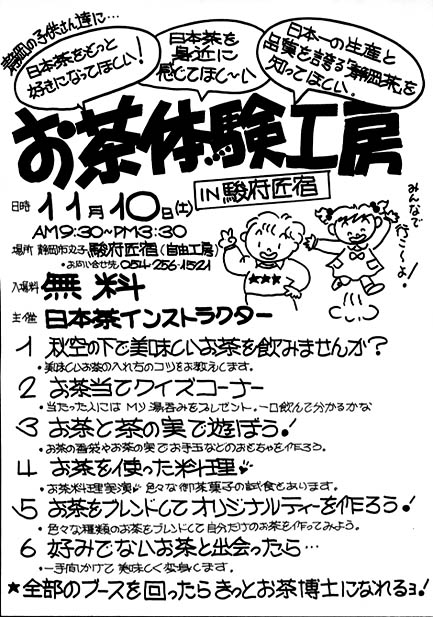 静岡の子供さん達に…
日本茶をもっと
好きになってほしい!
日本茶を
身近に
感じてほし〜い
日本一の生産と
品質を誇る「静岡茶」を
知ってほしい。
お茶体験工房
IN 駿府匠宿
日時 11月10日(土)
AM9:30~PM3:30
場所 静岡市丸子 駿府匠宿(自由工房)
・お問い合せ先 054-256-1521
みんなで
行こ〜よ!
入場料 無料
主催 日本茶インストラクター
1 秋空の下で美味しいお茶を飲みませんか?
・美味しいお茶の入れ方のコツをお教えします。
2 お茶当てクイズコーナー
・当たった人には MY 湯呑みをプレゼント。一口飲んで分かるかな
3 お茶と茶の実で遊ぼう!
・お茶の香袋やお茶の実でお手玉などのおもちゃを作ろう。
4 お茶を使った料理
・お茶料理実演 色々な御茶菓子の試食もあります。
5 お茶をブレンドしてオリジナルティーを作ろう!
・色々な種類のお茶をブレンドして自分だけのお茶を作ってみよう。
6 好みでないお茶と出会ったら…
・一手間かけて美味しく変身します。
★全部のブースを回ったらきっとお茶博士になれるヨ!